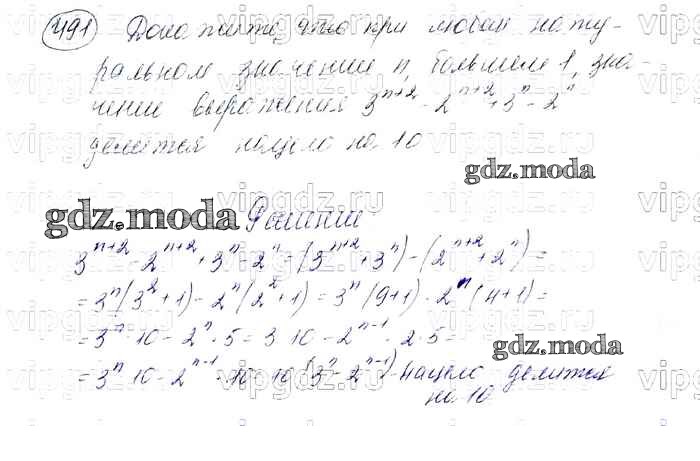 491 Докажите, что при любом нату-
ральном значении n, большем 1, зна-
чение выражения 3ⁿ⁺² - 2ⁿ⁺² + 3ⁿ - 2ⁿ
делится нацело на 10
gdz.moda
gdz.moda Решение
3ⁿ⁺² - 2ⁿ⁺² + 3ⁿ - 2ⁿ = (3ⁿ⁺² + 3ⁿ) - (2ⁿ⁺² + 2ⁿ) =
= 3ⁿ(3² + 1) - 2ⁿ(2² + 1) = 3ⁿ(9+1) - 2ⁿ(4+1) =
= 3ⁿ · 10 - 2ⁿ · 5 = 3 10 - 2ⁿ⁻¹ · 2 · 5 =
gdz.moda
= 3ⁿ · 10 - 2ⁿ⁻¹ · 10 = 10 (3ⁿ - 2ⁿ⁻¹) - нацело делится
на 10